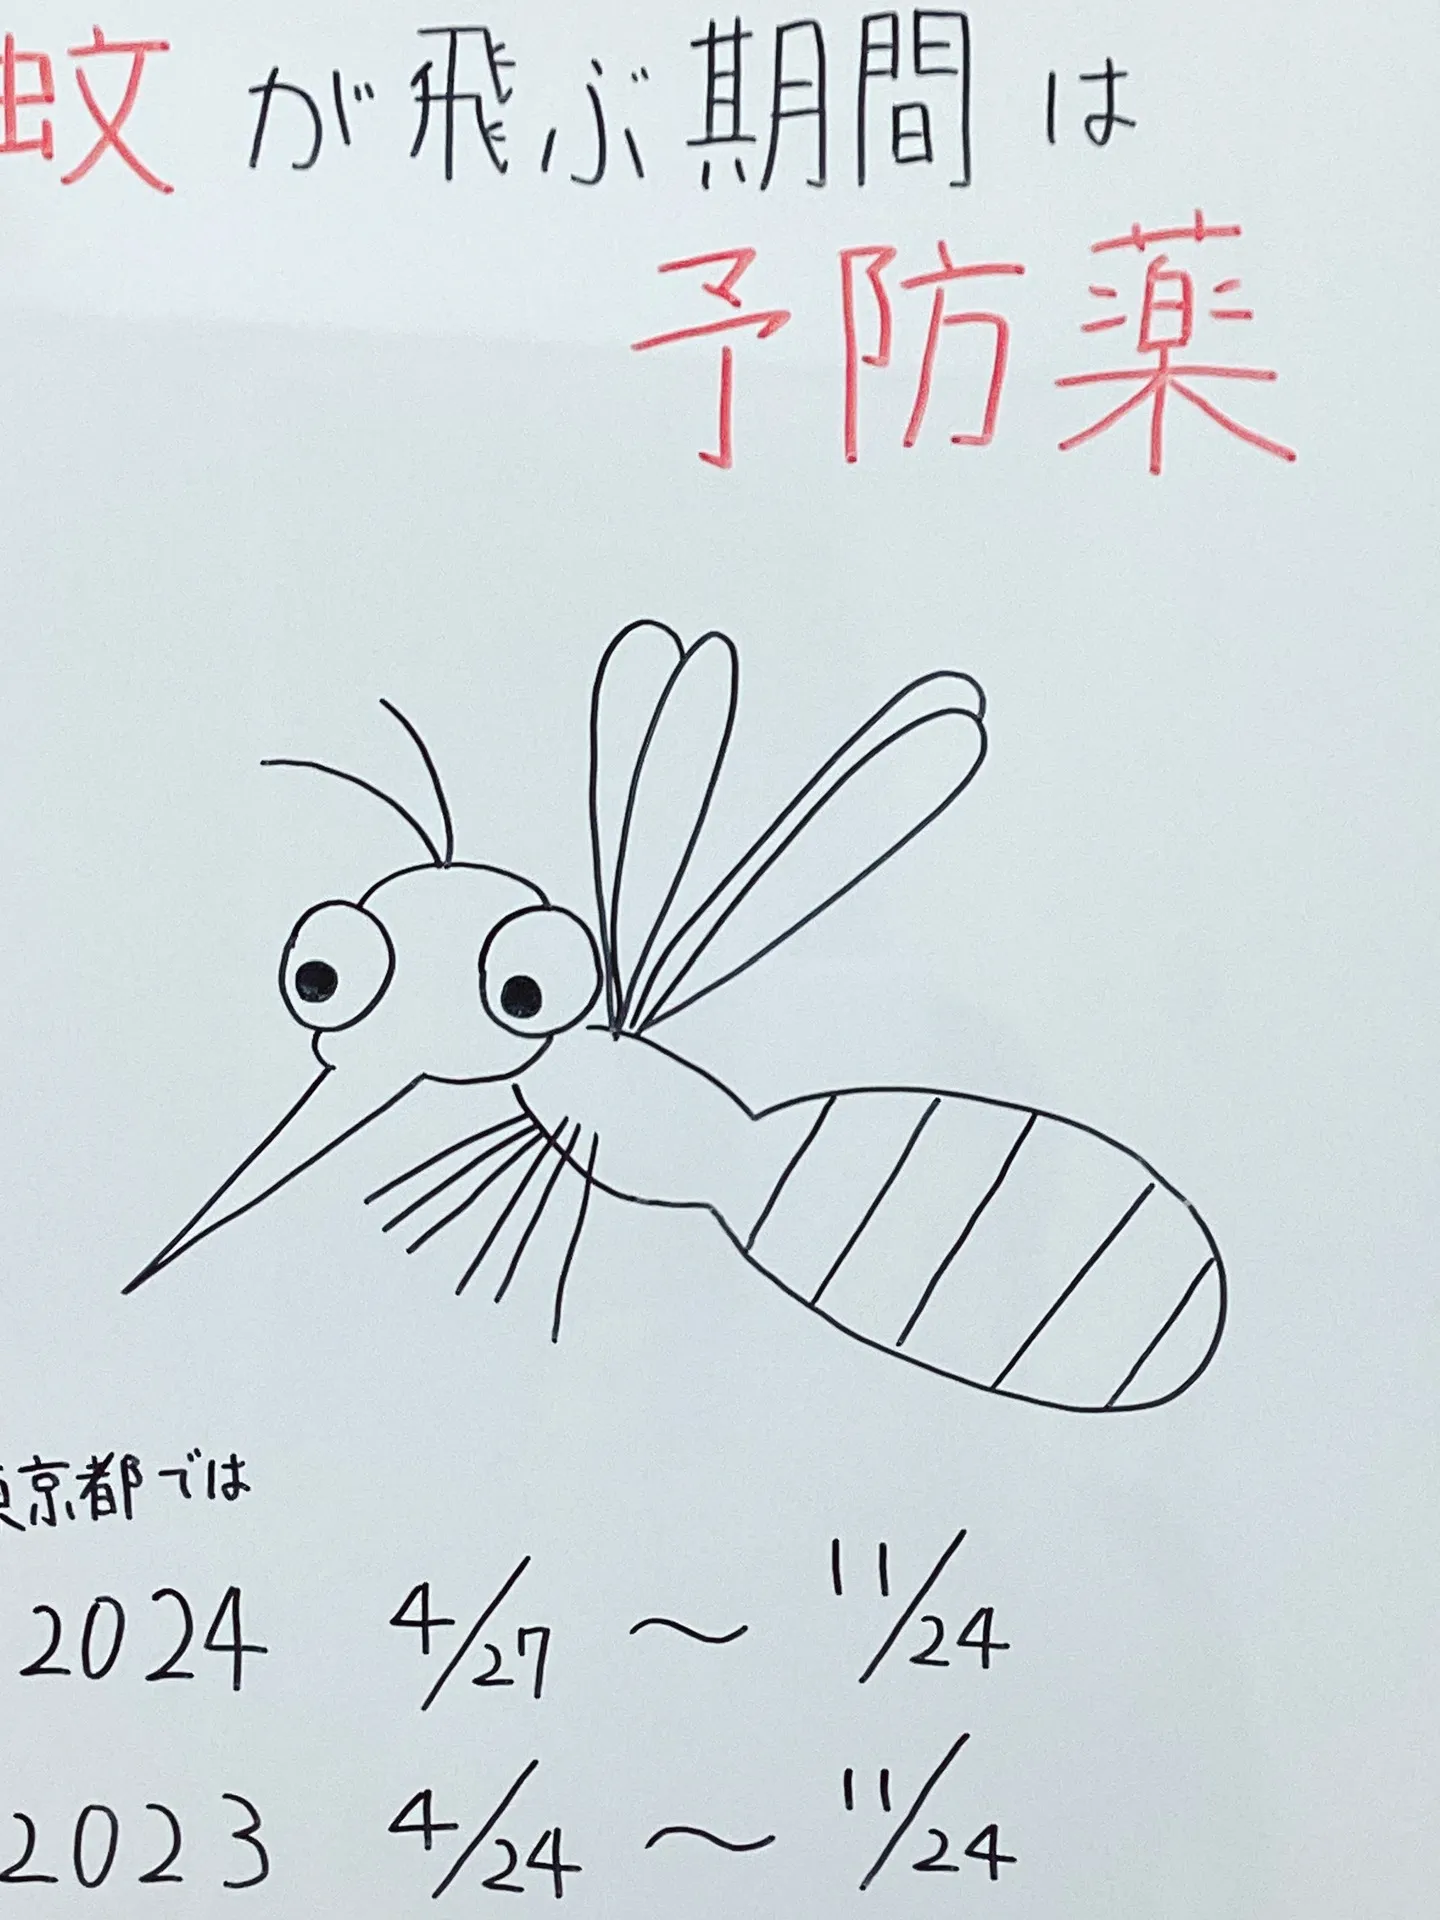 蚊が飛ぶ期間は
予防薬
東京都では
2024 4/27 〜 11/24
2023 4/24 〜 11/24